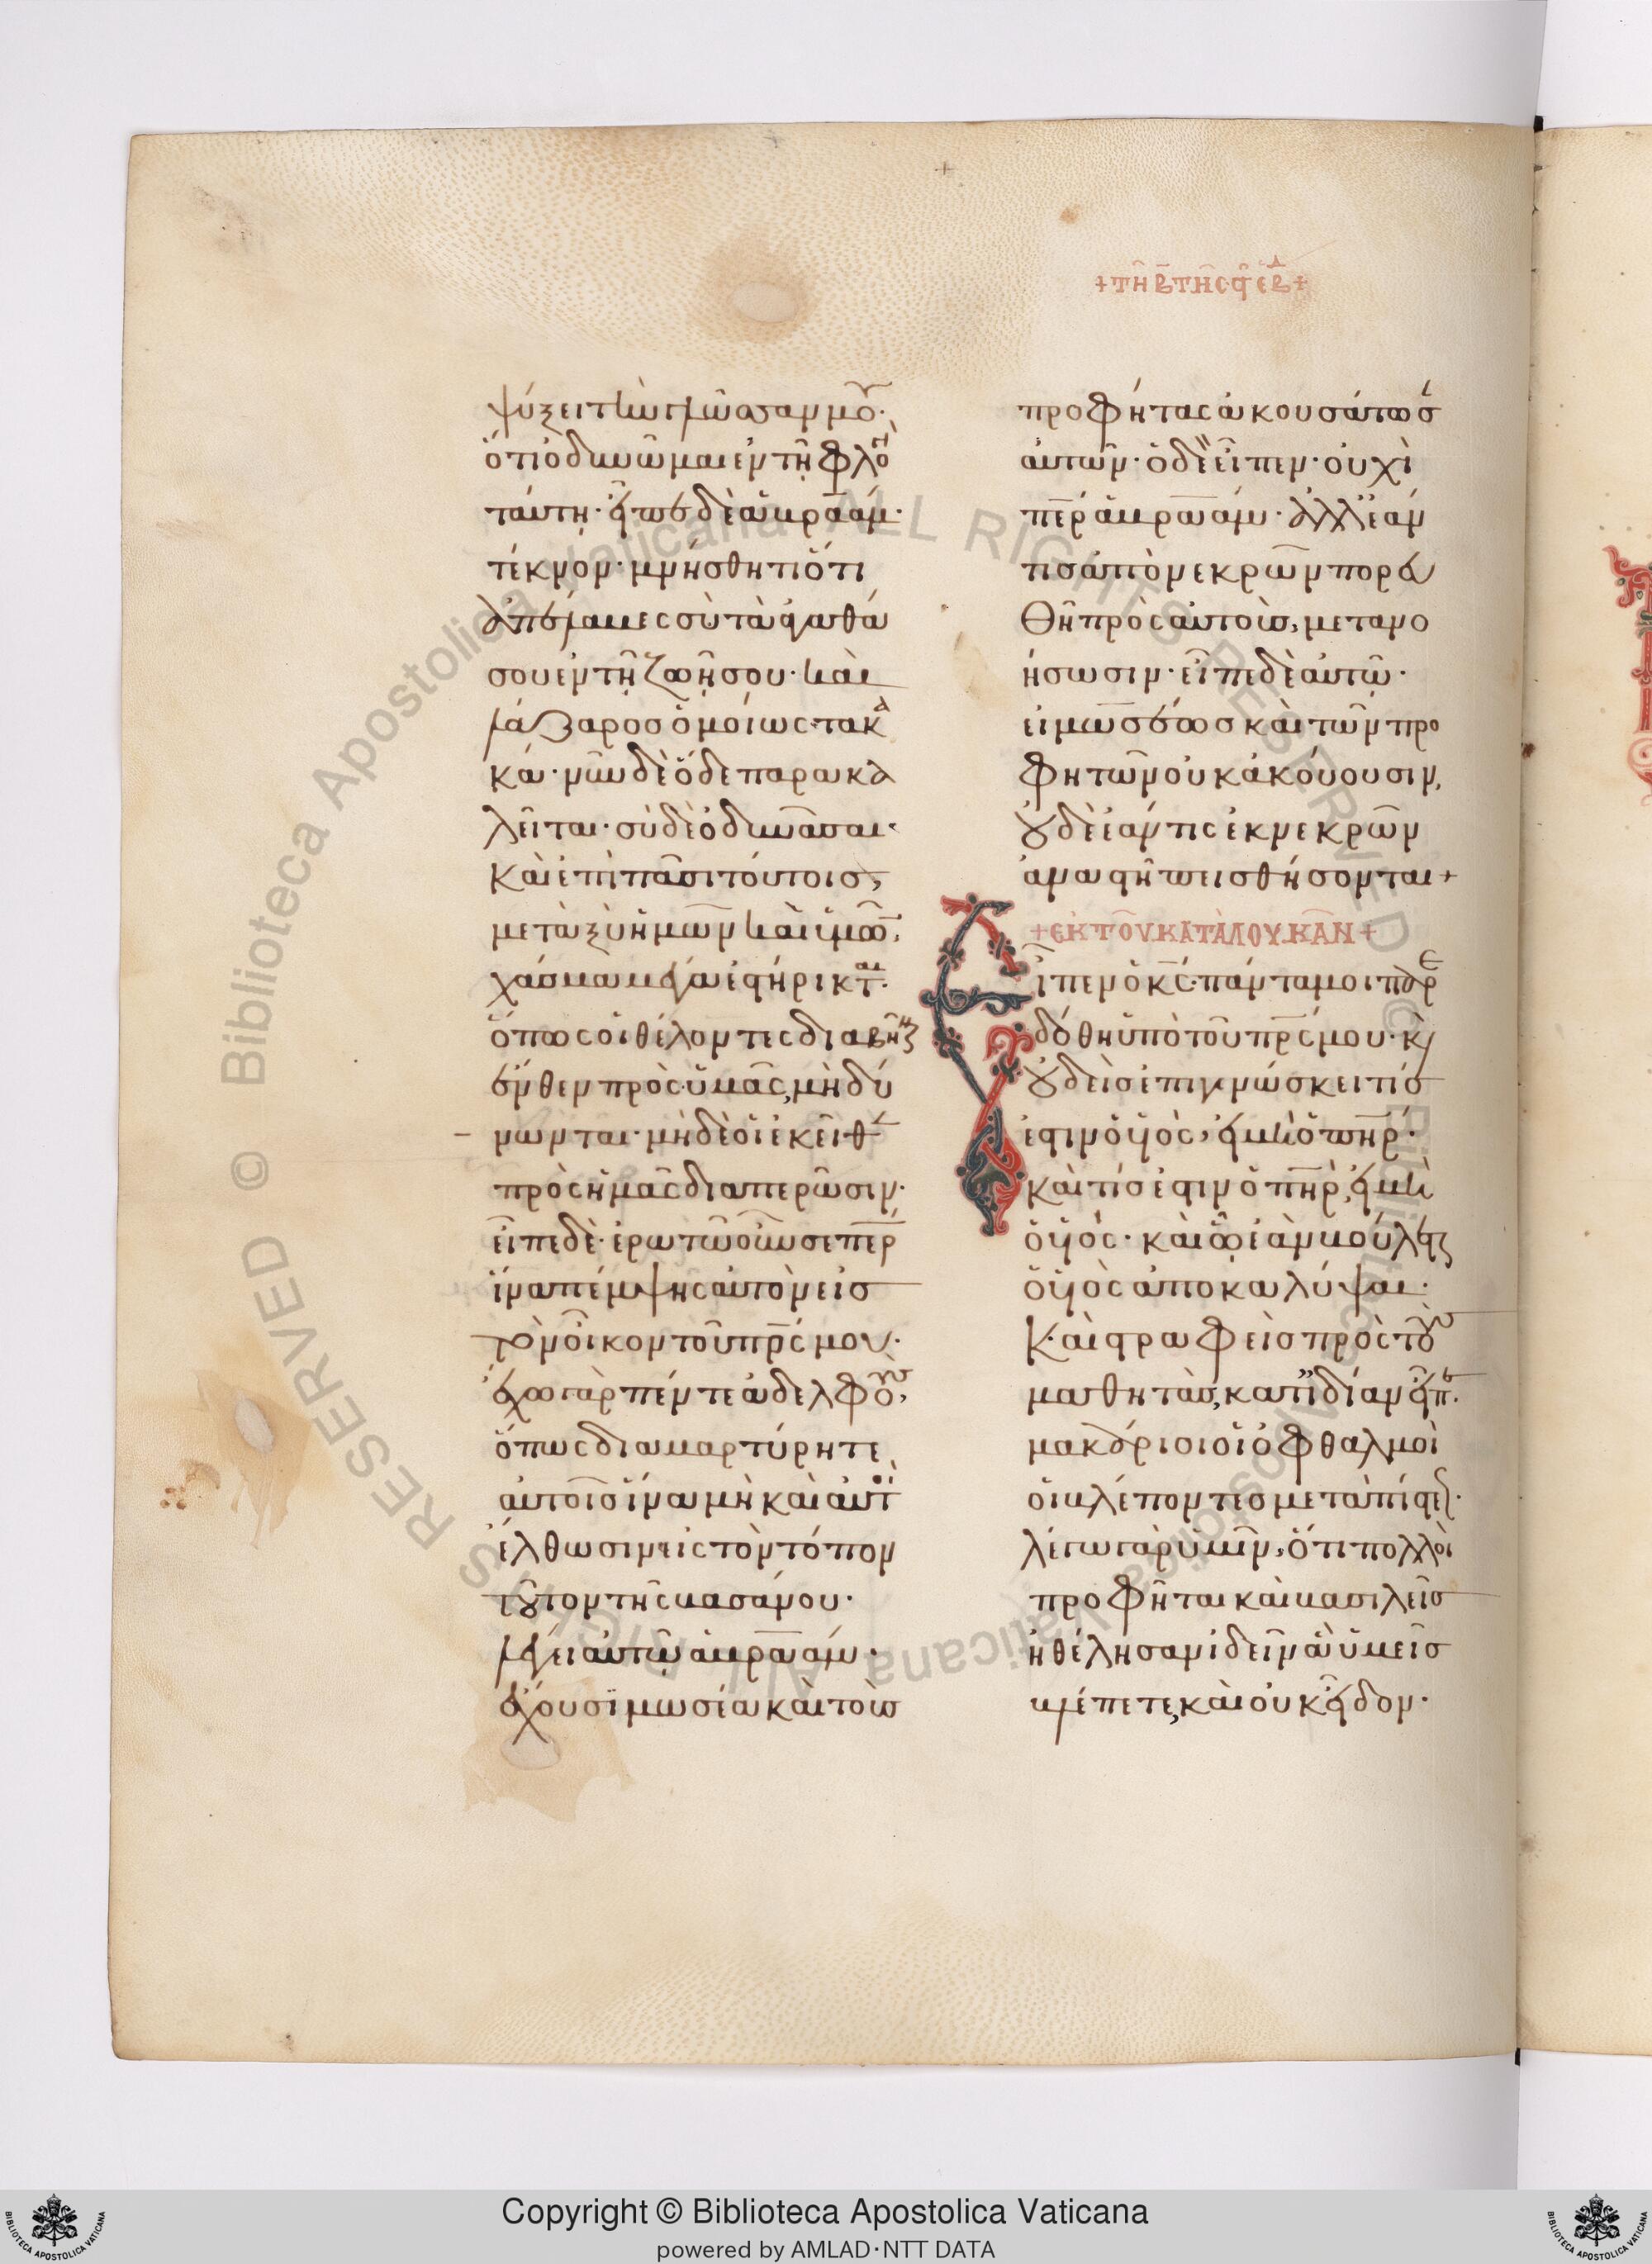 + τῆ β τῆς ϛ ἑβδ +
ψύξει τὴν γλῶσσαν μου·
ὅτι ὀδυνῶμαι ἐν τῆ φλο
ταύτη· εἶπεν δὲ ἀβραάμ·
τέκνον· μνήσθητι ὅτι
ἀπέλαβες σὺ τὰ ἀγαθά
σου ἐν τῆ ζωῆ σου· καὶ
λάζαρος ὁμοίως τα κα
κά· νῦν δὲ ὅδε παρακα
λεῖται· σὺ δὲ ὀδυνᾶσαι·
Καὶ ἐπὶ πᾶσι τούτοις,
μεταξὺ ἡμῶν καὶ ὑμῶν,
χάσμα μέγα ἐστήρικται·
ὅπως οἱ θέλοντες διαβῆναι
ἔνθεν πρὸς ὑμᾶς, μὴ δύ
νωνται· μὴδὲ οἱ ἐκεῖθεν
πρὸς ἡμᾶς διαπερῶσιν·
εἶπε δὲ· ἐρωτῶ οὖν σε περ
ἵνα πέμψης αὐτὸν εἰς
τὸν οἶκον τοῦ πρς μου·
ἔχω γὰρ πέντε ἀδελφούς,
ὅπως διαμαρτύρητε
αὐτοῖς ἵνα μὴ καὶ αὐτοὶ
ἔλθωσιν εἰς τὸν τόπον
τοῦτον τῆς βασάνου·
λέγει αὐτῶ ἀβραάμ·
ἔχουσι μωσέα καὶ τοὺς
προφήτας ἀκουσάτωσ
αὐτῶν· ὁ δὲ εἶπεν· οὐχὶ
περ ἀβραάμ· ἀλλ' ἐάν
τις ἀπὸ νεκρῶν πορευ
θῆ πρὸς αὐτοὺς, μετανο
ήσωσιν· εἶπε δὲ αὐτῶ·
εἰ μωσέως καὶ τῶν προ
φητῶν οὐκ ἀκούουσιν,
οὐδὲ ἐάν τις ἐκ νεκρῶν
ἀναστῆ πεισθήσονται +
+ ἐκ τοῦ κατὰ λουκᾶν +
Εἶπεν ὁ κς· πάντα μοι παρε
δόθη ὑπὸ τοῦ πρς μου· κὶ
οὐδεὶς ἐπιγινώσκει τίς
ἐστιν ὁ υἱὸς, εἰ μὴ ὁ πηρ·
καὶ τίς ἐστιν ὁ πηρ, εἰ μὴ
ὁ υἱός· καὶ ᾧ ἐὰν βούληται
ὁ υἱὸς ἀποκαλύψαι·
Καὶ στραφεὶς πρὸς τοὺς
μαθητὰς, κατ' ἰδίαν εἶπεν·
μακάριοι οἱ ὀφθαλμοὶ
οἱ βλέποντες
λέγω γὰρ ὑμῖν, ὅτι πολλοὶ
προφῆται καὶ βασιλεῖς
ἠθέλησαν ἰδεῖν ἃ ὑμεῖς
βλέπετε, καὶ οὐκ εἶδον·
Copyright © Biblioteca Apostolica Vaticana
powered by AMLAD·NTT DATA